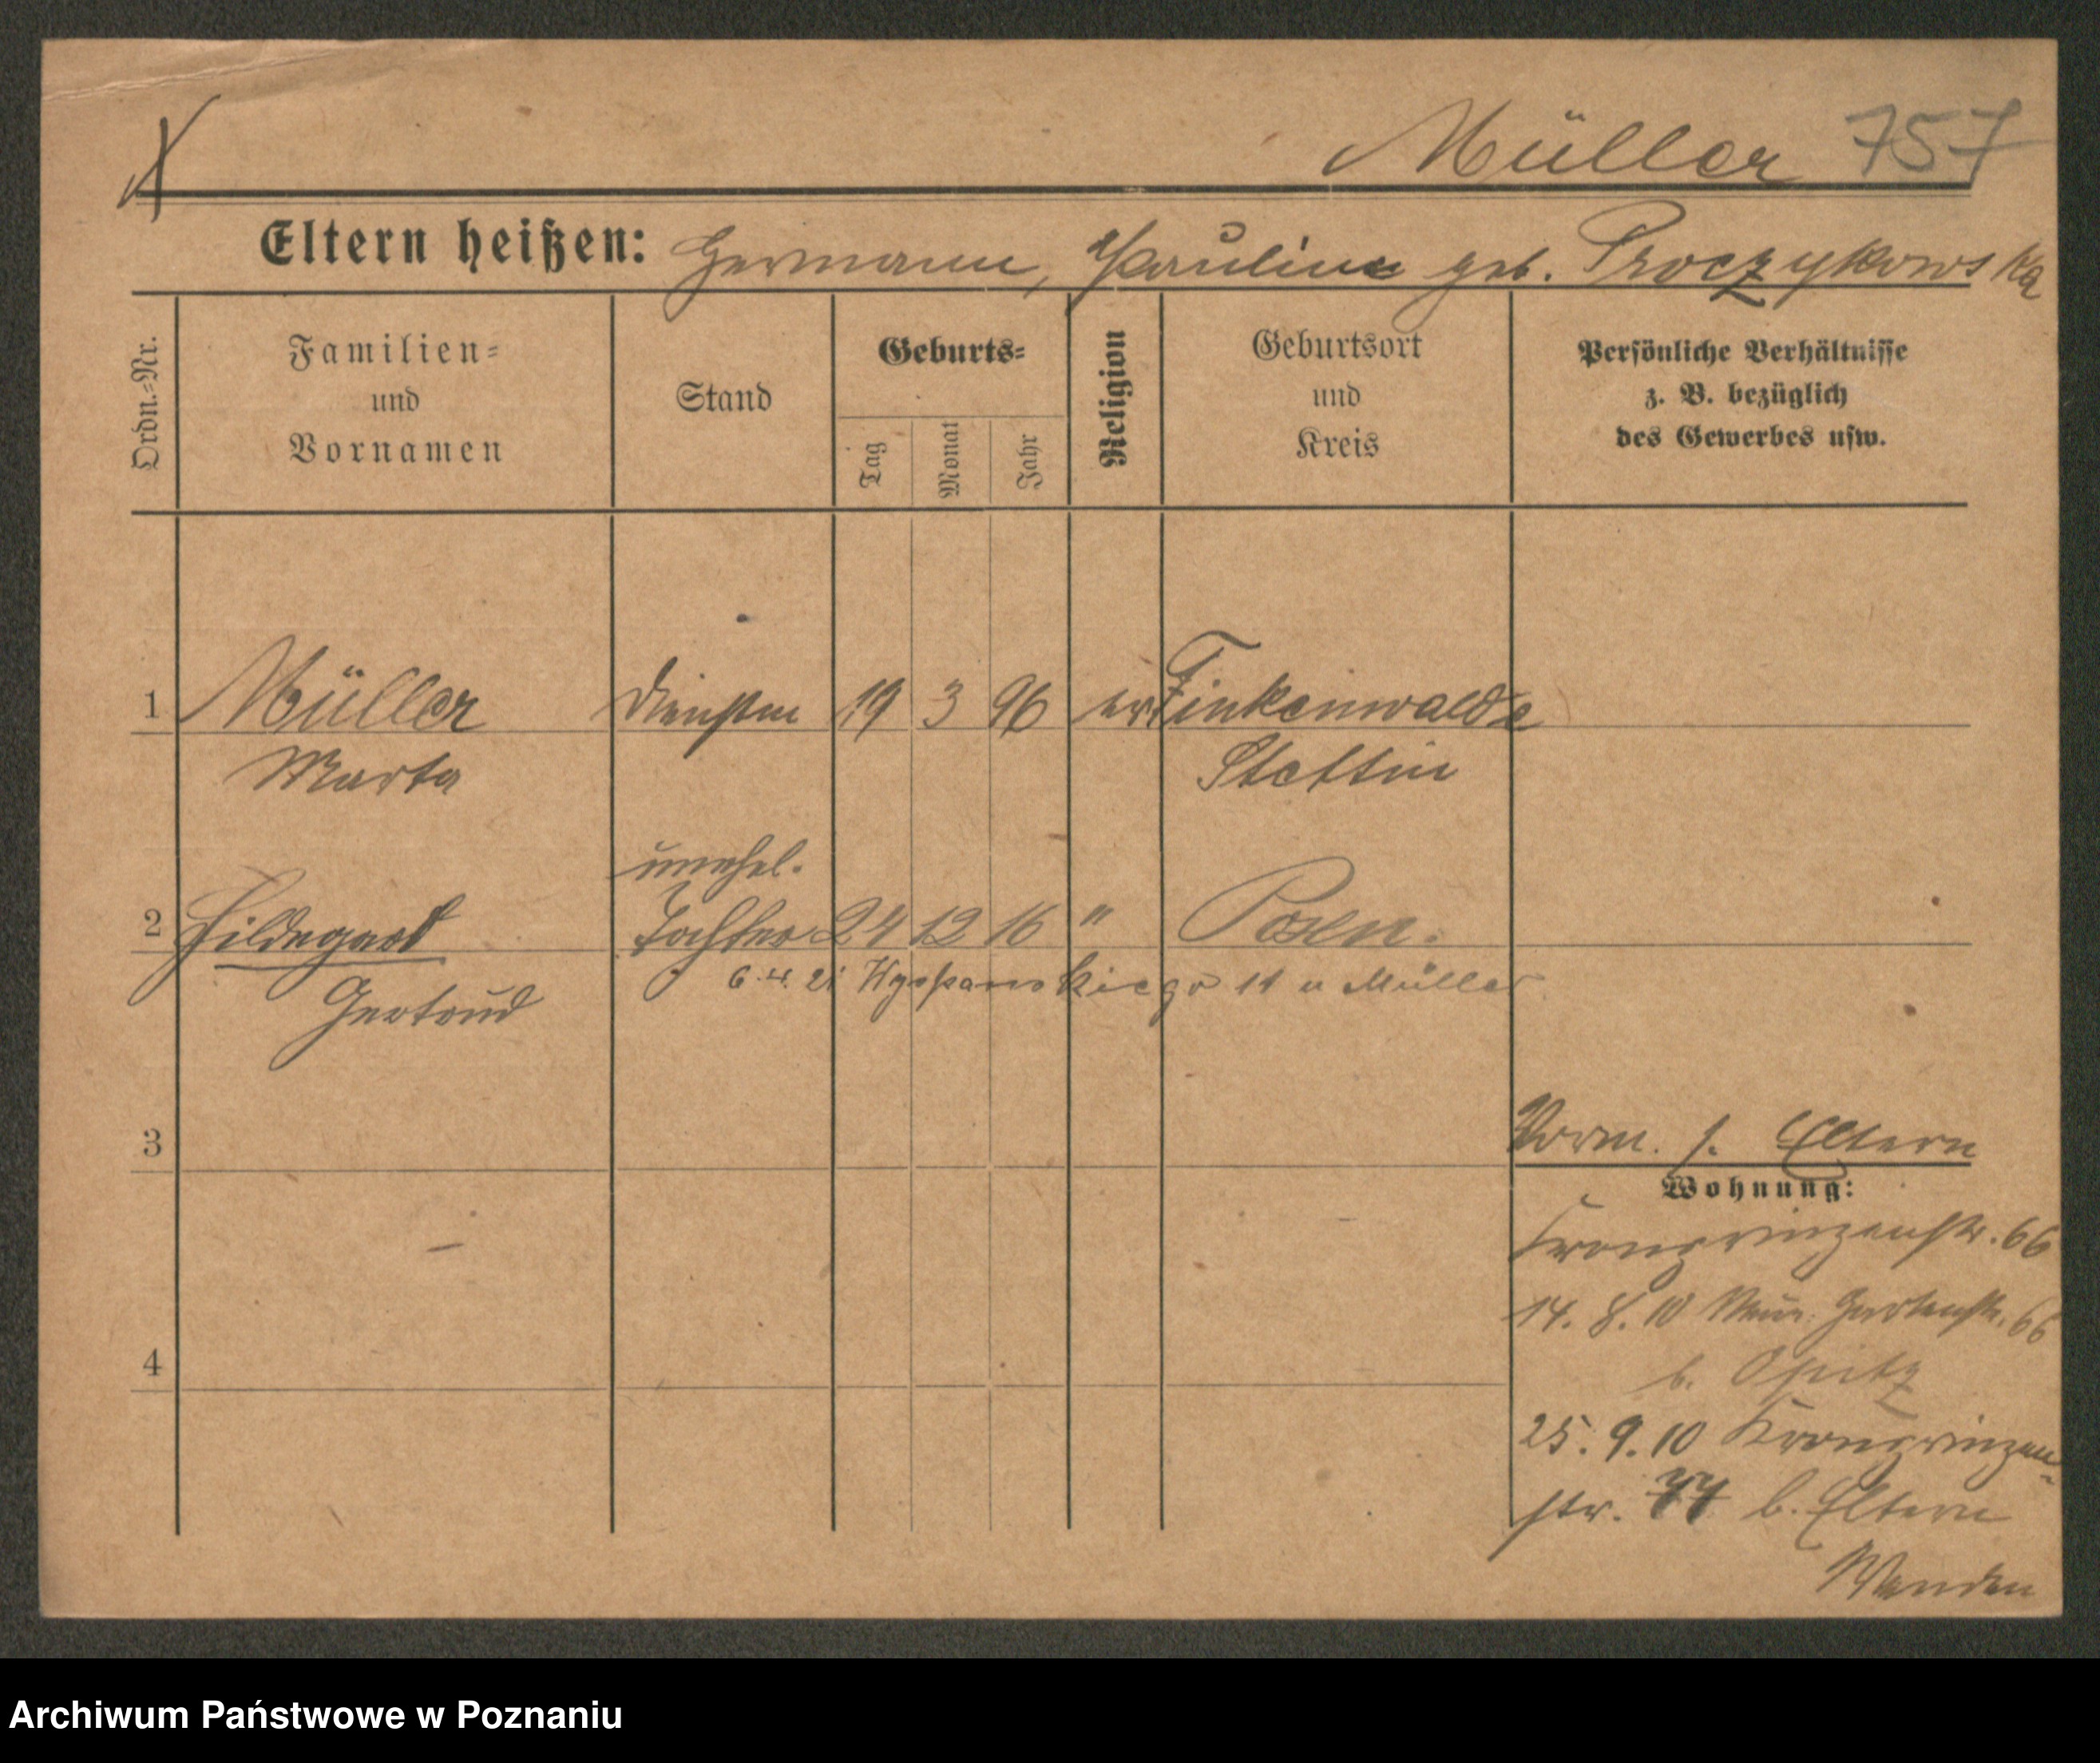 Müller 757
Eltern heißen: Hermann, Pauline geb. Proczykowska
Ordn.=Nr.
Familien=
und
Vornamen
Stand
Geburts=
Tag
Monat
Jahr
Religion
Geburtsort
und
Kreis
Persönliche Verhältnisse
z. B. bezüglich
des Gewerbes usw.
1 Müller Dienstm 19 3 96 ev Finkenwalde
Marta Stettin
unehel.
2 Hildegard Tochter 24 12 16 " Posen.
6. 4. 21 Wyspanskiego 11 u Müller
Gertrud
3
Vorm. s. Eltern
Wohnung:
Kronprinzenstr. 66
14. 8. 10 Gartenstr. 66
4
b. Opitz
25. 9. 10 Kronprinzen-
str. 77 b. Eltern